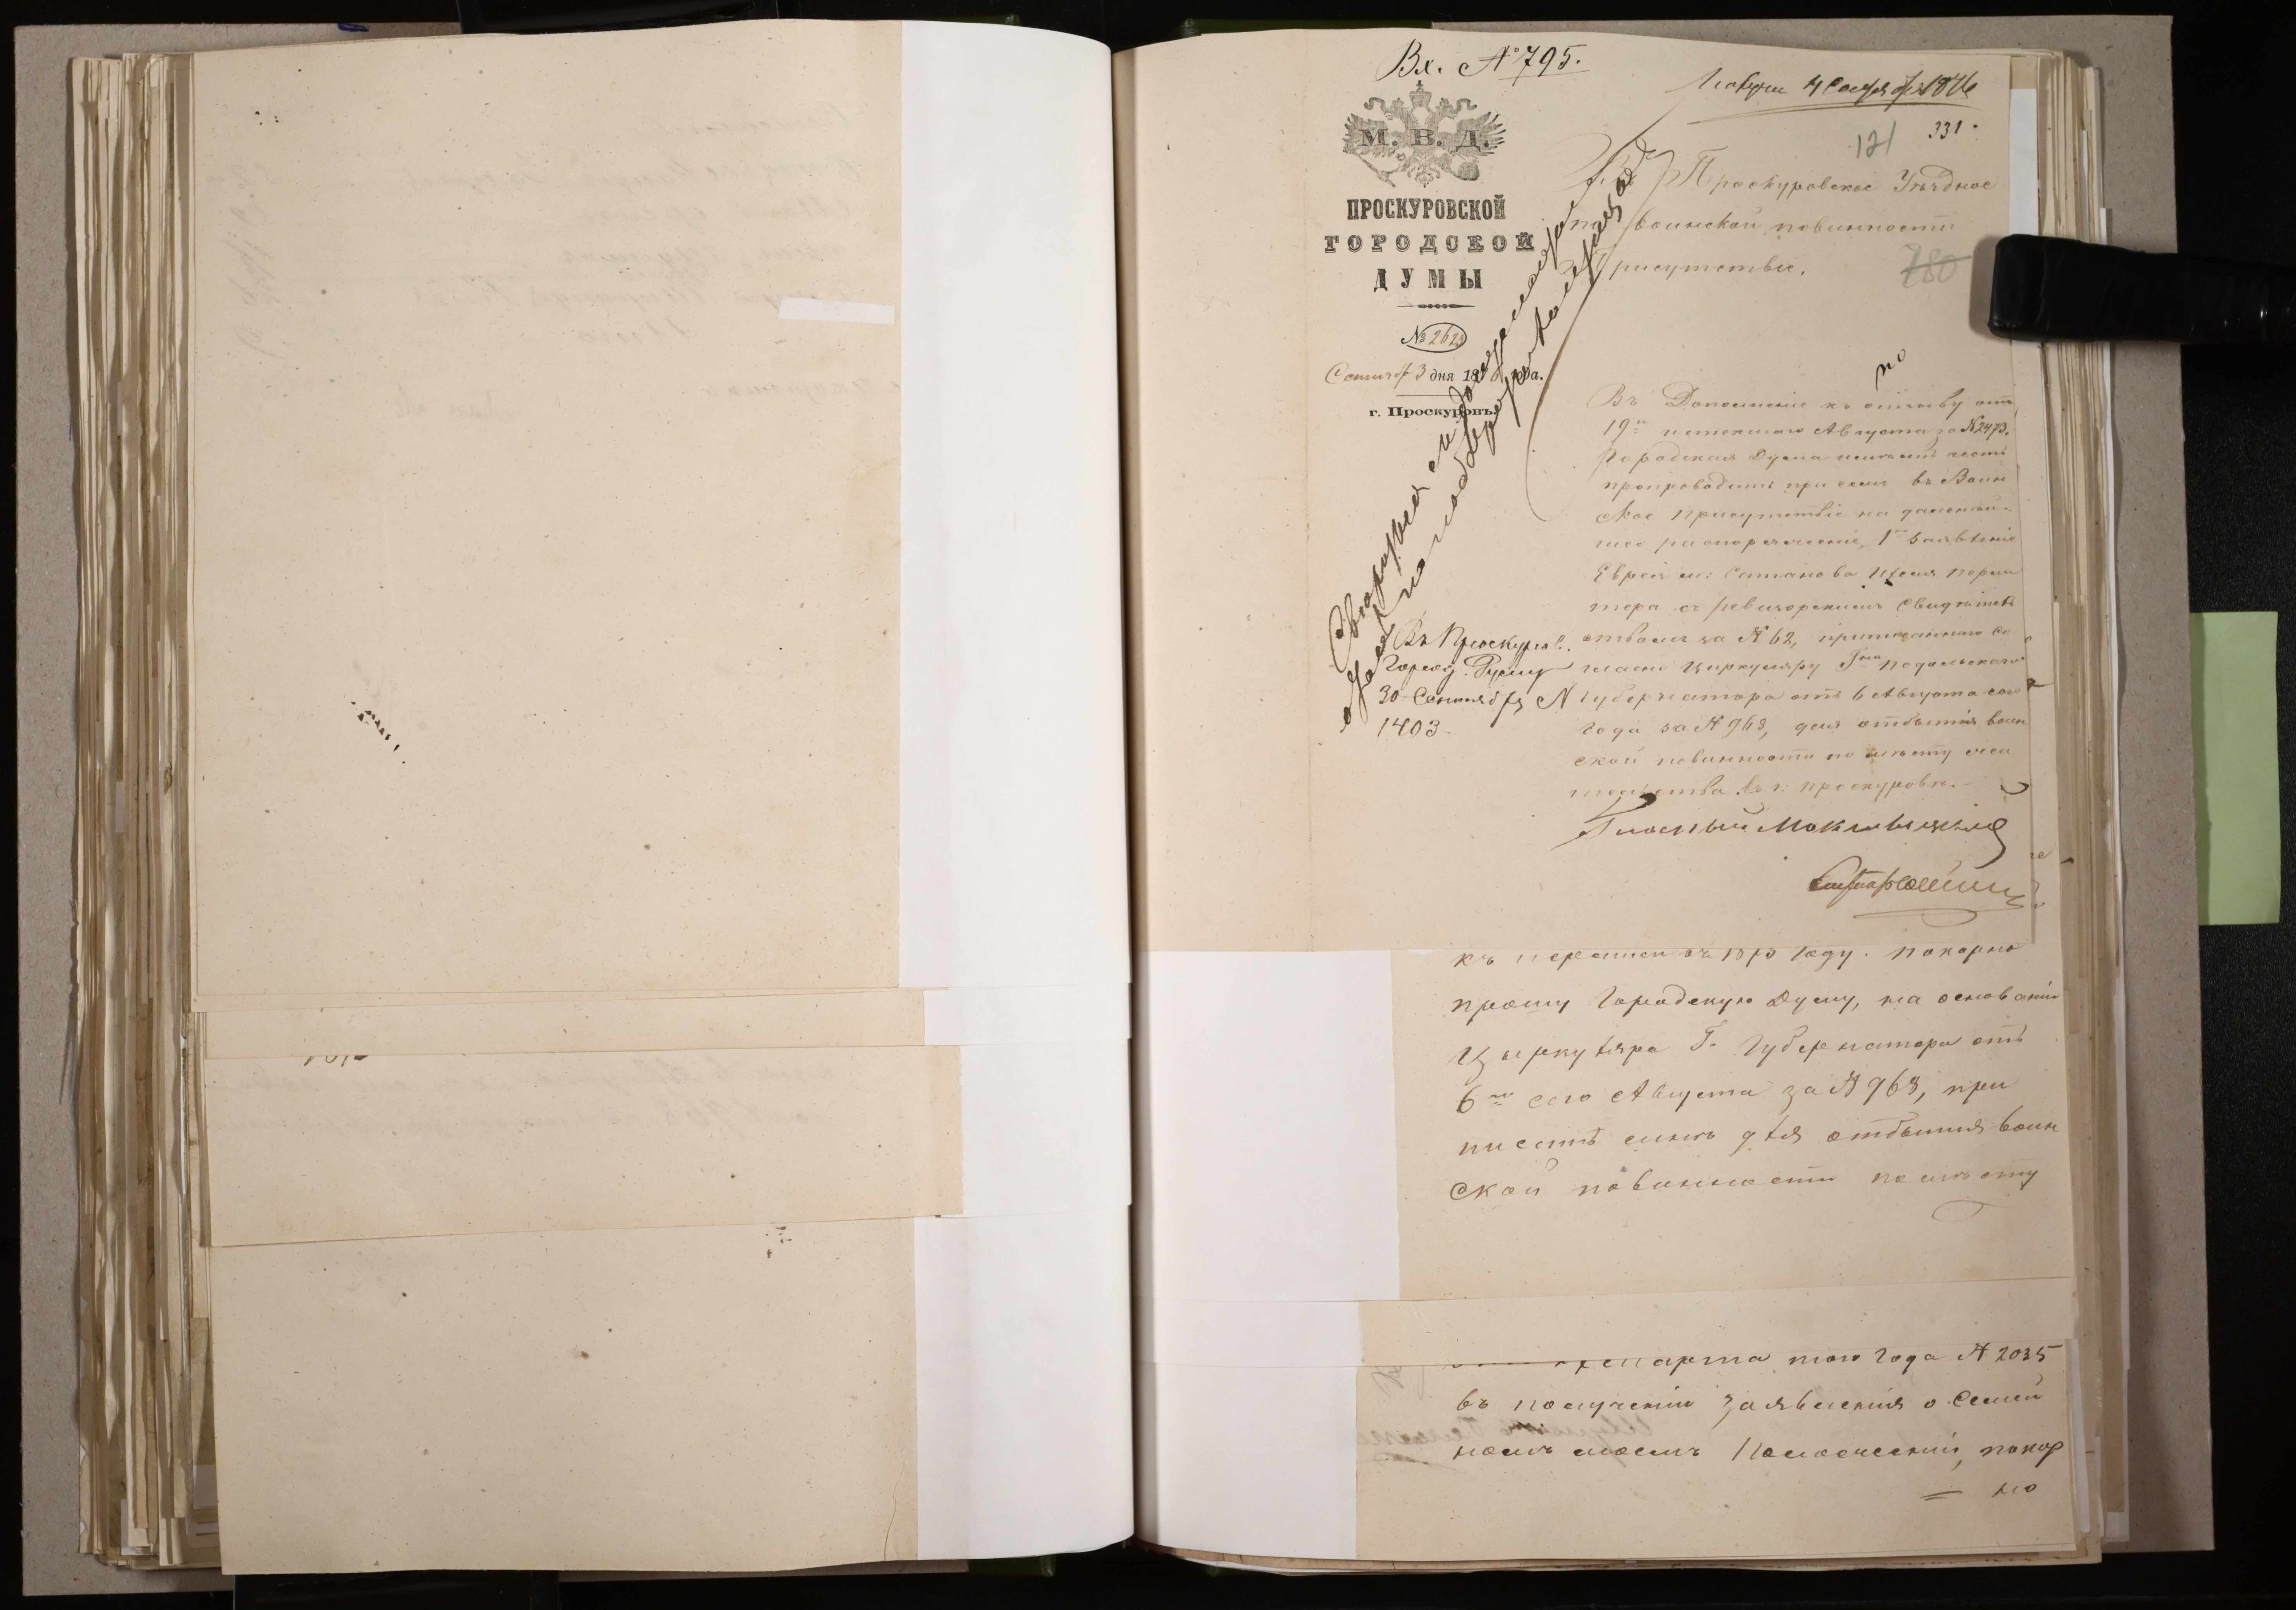 Вх. № 795.
Получ 4 Сентября 1876
331.
121
М. В. Д.
ПРОСКУРОВСКОЙ
ГОРОДСКОЙ
ДУМЫ
№ 2622
Сентяб 3 дня 1876 года.
г. Проскуровъ.
Въ Проскуровское Уѣздное
по воинской повинности
Присутствіе.
780
Въ Дополненіе къ отзыву отъ
19го истекшаго Августа за № 2473.
Городская Дума имѣетъ честь
препроводить при семъ въ Воин
ское присутствіе на дальнѣй-
шее распоряженіе, 1е заявленіе
Еврея м: Сатанова
съ ревизорскимъ свидѣтель
ствомъ за № 62, приписаннаго со
гласно Циркуляру Гна Подольскаго
Губернатора отъ 6 Августа сего
года за № 968, для отбытія воин
ской повинности по мѣсту жи
тельства въ г: Проскуровѣ.
Гласный
Въ Проскуров.
Город. Думу
30 Сентября №
1403.
къ переписи въ 1875 году. покорно
прошу Городскую Думу, на основаніи
Циркуляра Г. Губернатора отъ
6го сего Августа за № 968, при
писать сына для отбытія воин
ской повинности по мѣсту
марта того года № 2035
въ полученіи заявленія о семей
номъ моемъ положеніи, покор
но